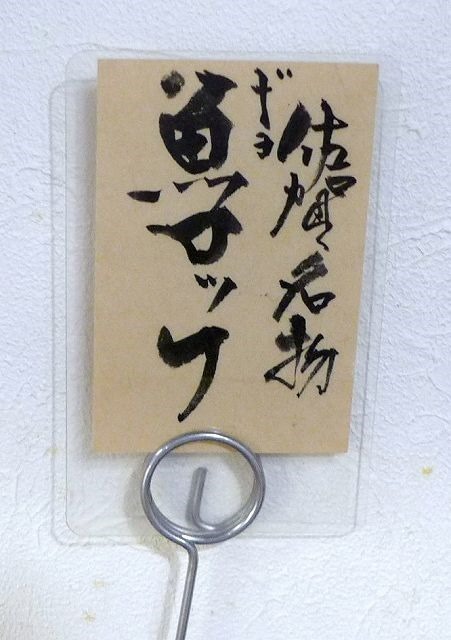 佐賀名物
ギョ
魚ロッケ